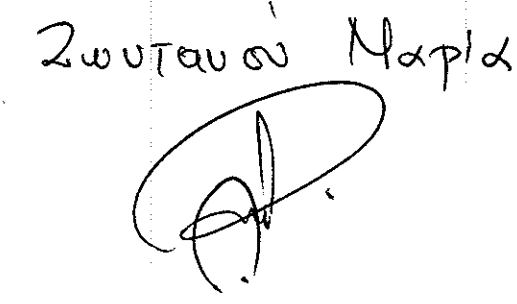 Ζωντανού Μαρία